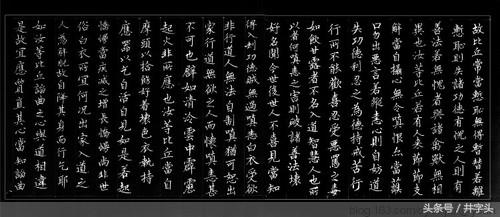 故比丘常當慚恥無得暫替若離
慚恥則失諸功德有愧之人則有
善法若無愧者與諸禽獸無相
異也汝等比丘若有人來節節支
解當自攝心無令瞋恨亦當護
口勿出惡言若縱恚心則自妨道
失功德利忍之為德持戒苦行
行所不能歡喜忍受惡罵之毒
如飲甘露者不名入道智慧人也所
以者何瞋恚之害則破諸善法壞
好名聞今世後世人不喜見當
得入劫功德賊無過瞋恚白衣受欲
非行道人無法自制瞋猶可恕出
家行道無欲之人而懷瞋恚甚
不可也譬如清冷雲中霹靂
起火非所應也汝等比丘當自
摩頭以捨飾好著壞色衣執持
應器以乞自活自見如是若起
憍慢當疾滅之增長憍慢尚非世
俗白衣所宜何況出家入道之
人為解脫故自降其身而行乞耶
汝等比丘諂曲之心與道相違
是故宜應質直其心當知諂曲
头条号 / 井字头